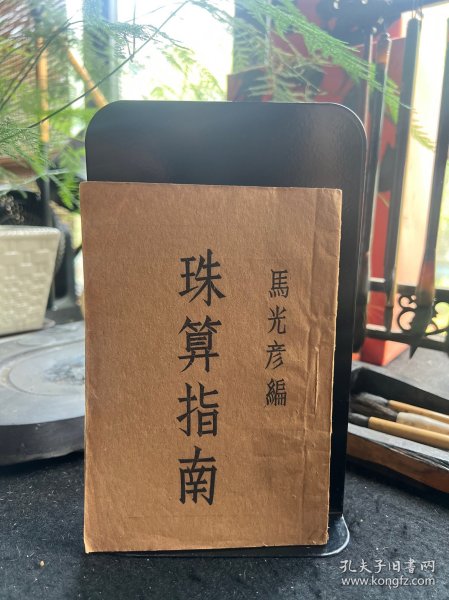 馬光彦編
珠算指南
孔夫子旧书网
www.kongfz.com